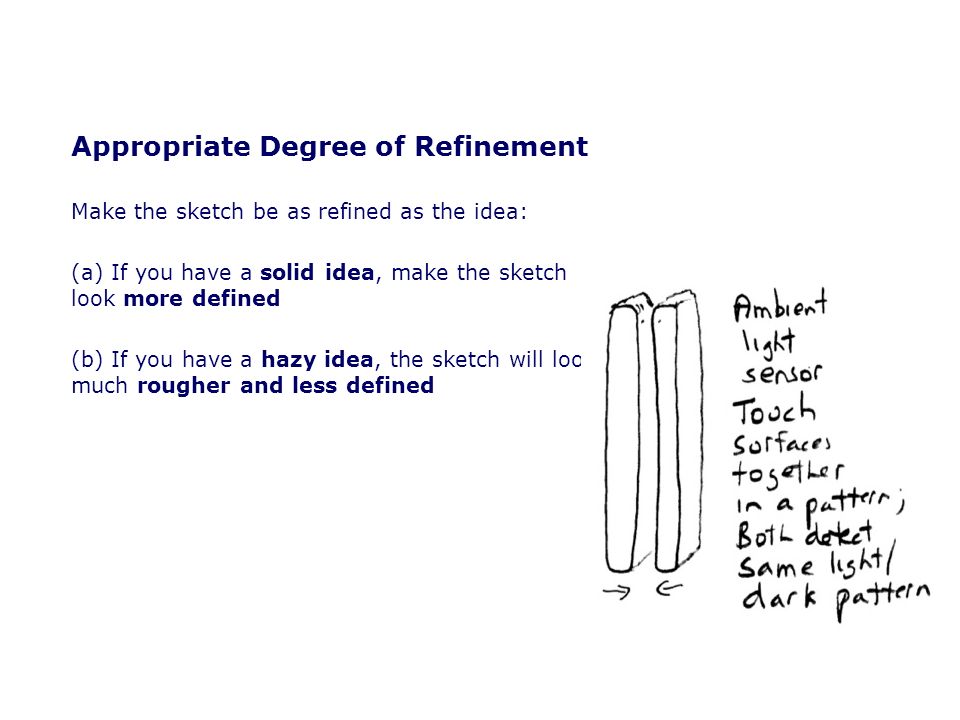 Appropriate Degree of Refinement
Make the sketch be as refined as the idea:
(a) If you have a solid idea, make the sketch
look more defined
(b) If you have a hazy idea, the sketch will loo
much rougher and less defined
Ambient
light
sensor
Touch
surfaces
together
in a pattern;
Both detect
same light/
dark pattern